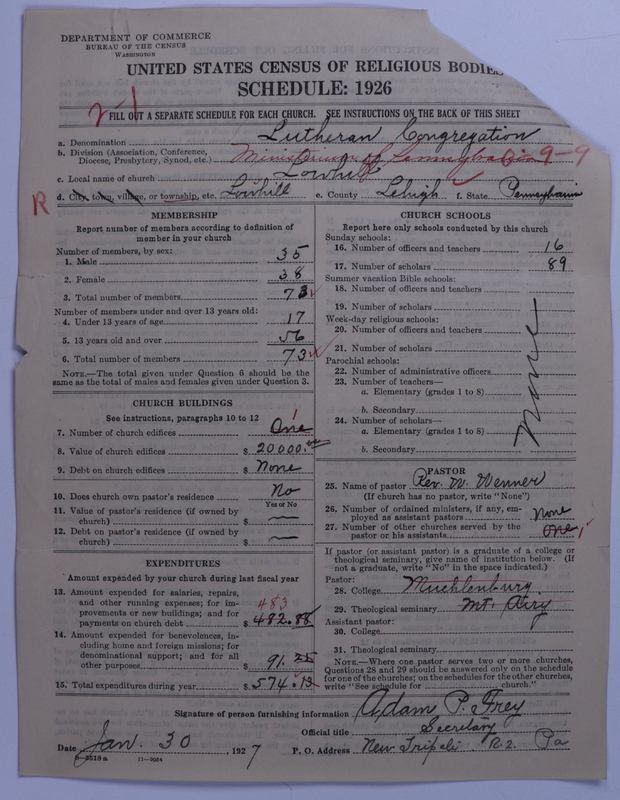 DEPARTMENT OF COMMERCE
BUREAU OF THE CENSUS
WASHINGTON
UNITED STATES CENSUS OF RELIGIOUS BODIES
SCHEDULE: 1926
2-1
FILL OUT A SEPARATE SCHEDULE FOR EACH CHURCH. SEE INSTRUCTIONS ON THE BACK OF THIS SHEET
a. Denomination Lutheran Congregation
b. Division (Association, Conference, Diocese, Presbytery, Synod, etc.) Ministerium of Pennsylvania 9-9
c. Local name of church Lowhill
R
d. City, town, village, or township, etc. Lowhill e. County Lehigh f. State Pennsylvania
MEMBERSHIP
Report number of members according to definition of
member in your church
Number of members, by sex:
1. Male 35
2. Female 38
3. Total number of members 73
Number of members under and over 13 years old:
4. Under 13 years of age 17
5. 13 years old and over 56
6. Total number of members 73
NOTE.—The total given under Question 6 should be the
same as the total of males and females given under Question 3.
CHURCH BUILDINGS
See instructions, paragraphs 10 to 12
7. Number of church edifices One 1
8. Value of church edifices $ 20000.00
9. Debt on church edifices $ None
10. Does church own pastor's residence No
Yes or No
11. Value of pastor's residence (if owned by
church) $ —
12. Debt on pastor's residence (if owned by
church) $ —
EXPENDITURES
Amount expended by your church during last fiscal year
13. Amount expended for salaries, repairs,
and other running expenses; for im-
provements or new buildings; and for
payments on church debt $ 482.88 483
14. Amount expended for benevolences, in-
cluding home and foreign missions; for
denominational support; and for all
other purposes $ 91.25
15. Total expenditures during year $ 574.13
CHURCH SCHOOLS
Report here only schools conducted by this church
Sunday schools:
16. Number of officers and teachers 16
17. Number of scholars 89
Summer vacation Bible schools:
18. Number of officers and teachers
19. Number of scholars
Week-day religious schools:
20. Number of officers and teachers
21. Number of scholars
Parochial schools:
22. Number of administrative officers
23. Number of teachers—
a. Elementary (grades 1 to 8)
b. Secondary
24. Number of scholars—
a. Elementary (grades 1 to 8)
b. Secondary
None
PASTOR
25. Name of pastor Rev. W. Wenner
(If church has no pastor, write "None")
26. Number of ordained ministers, if any, em-
ployed as assistant pastors None
27. Number of other churches served by the
pastor or his assistants One 1
If pastor (or assistant pastor) is a graduate of a college or
theological seminary, give name of institution below. (If
not a graduate, write "No" in the space indicated.)
Pastor:
28. College Muehlenburg.
29. Theological seminary Mt. Airy
Assistant pastor:
30. College
31. Theological seminary
NOTE.—Where one pastor serves two or more churches,
Questions 28 and 29 should be answered only on the schedule
for one of the churches; on the schedules for the other churches,
write "See schedule for church."
Signature of person furnishing information Adam P. Frey
Official title Secretary
Date Jan. 30, 1927 P. O. Address New Tripoli R.2. Pa
8-2518a 11-9054